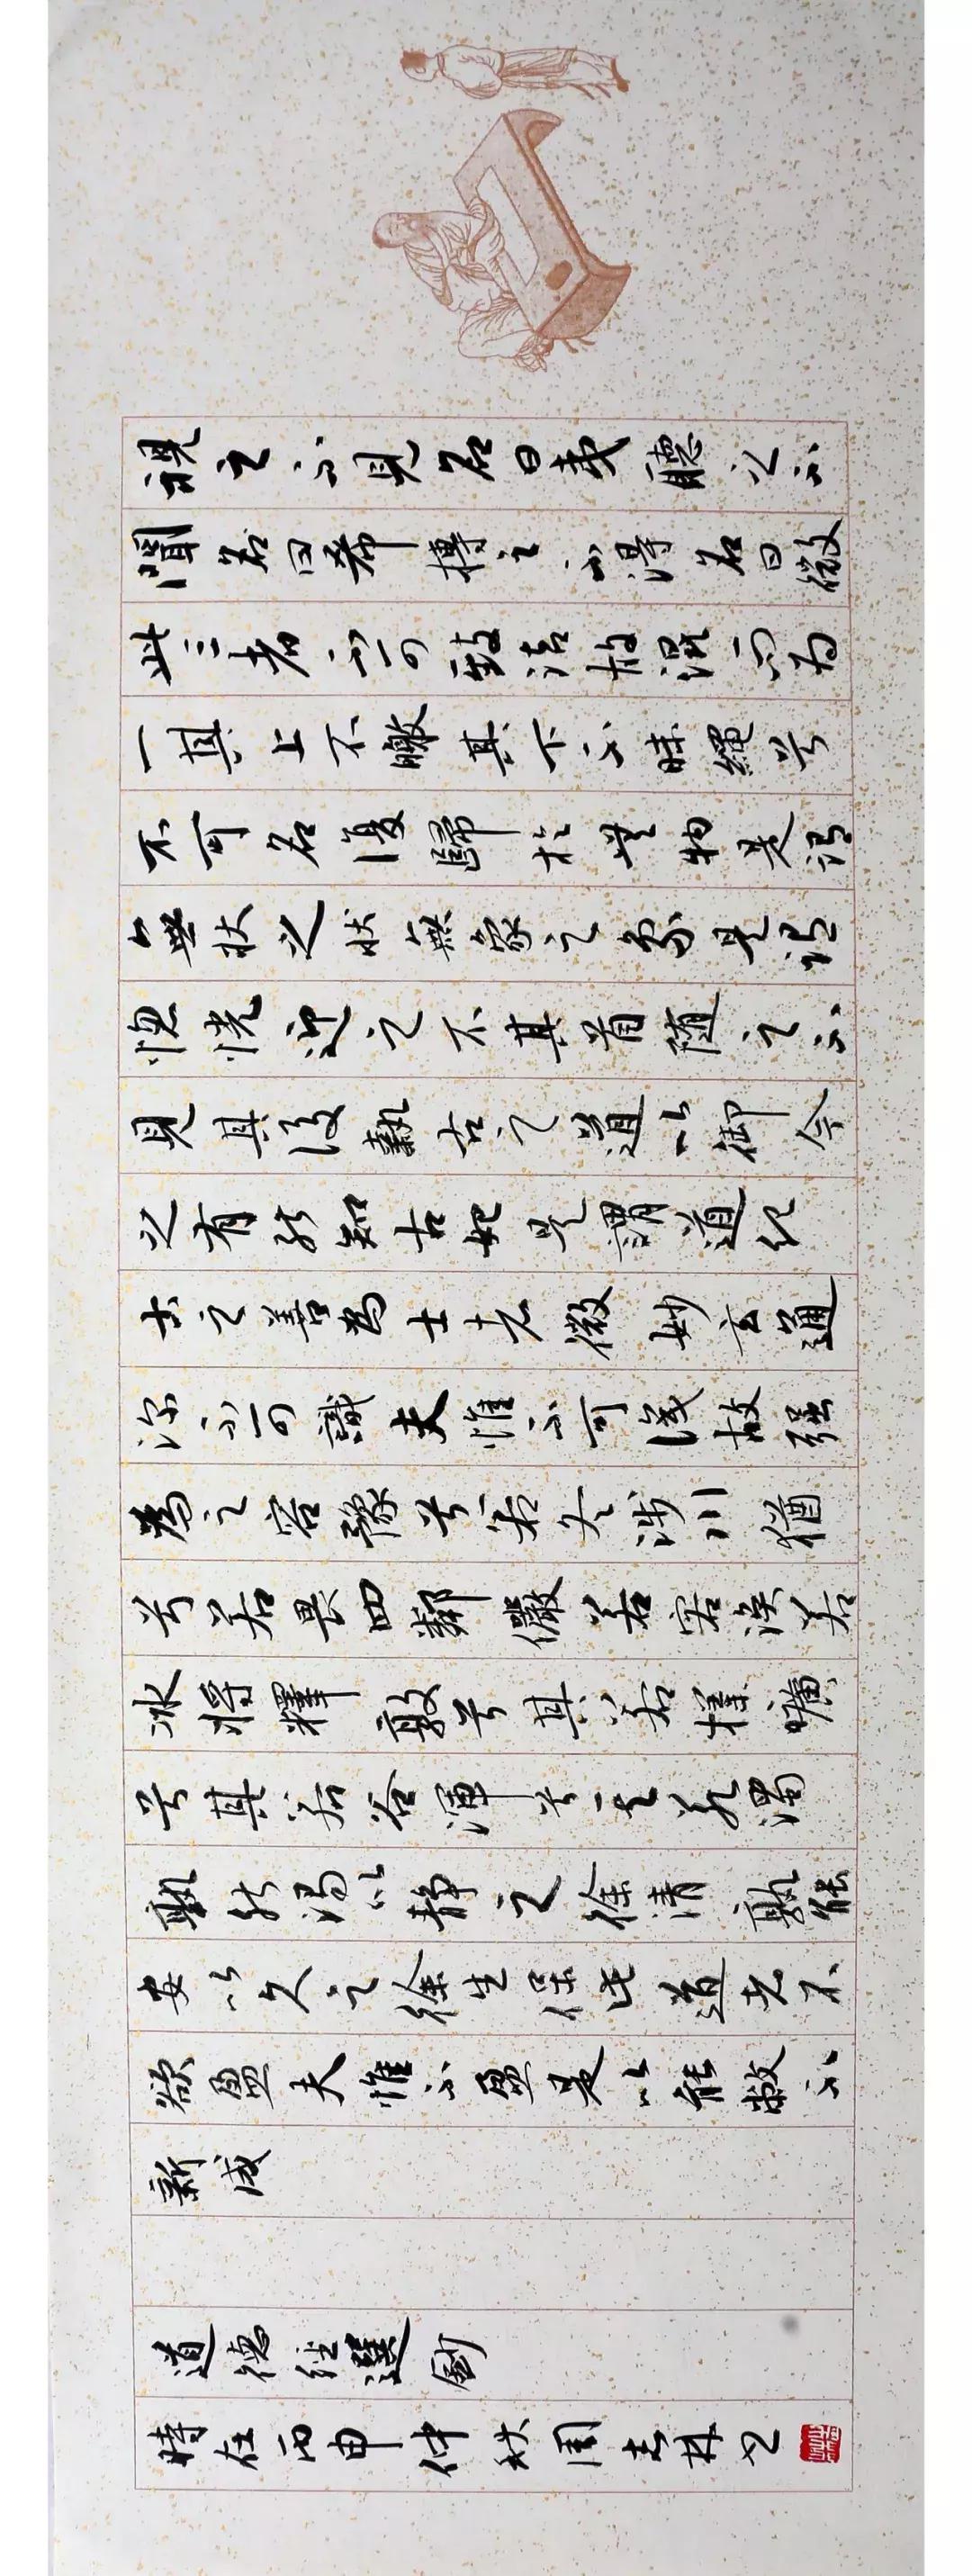 視之不見名曰夷聽之不
聞名曰希摶之不得名曰微
此三者不可致詰故混而為
一其上不皦其下不昧繩兮
不可名復歸於無物是謂
無狀之狀無象之象是謂
惚恍迎之不其首隨之不
見其後執古之道以御今
之有能知古始是謂道紀
古之善為士者微妙玄通
深不可識夫惟不可識故強
為之容豫兮若冬涉川猶
兮若畏四鄰儼若客渙若
冰將釋敦兮其若樸曠
兮其若谷渾兮其若濁
孰能濁以靜之徐清孰能
安以久之徐生保此道者不
欲盈夫惟不盈是以能敝不
新成
道德經選鈔
時在丙申仲秋周志林書